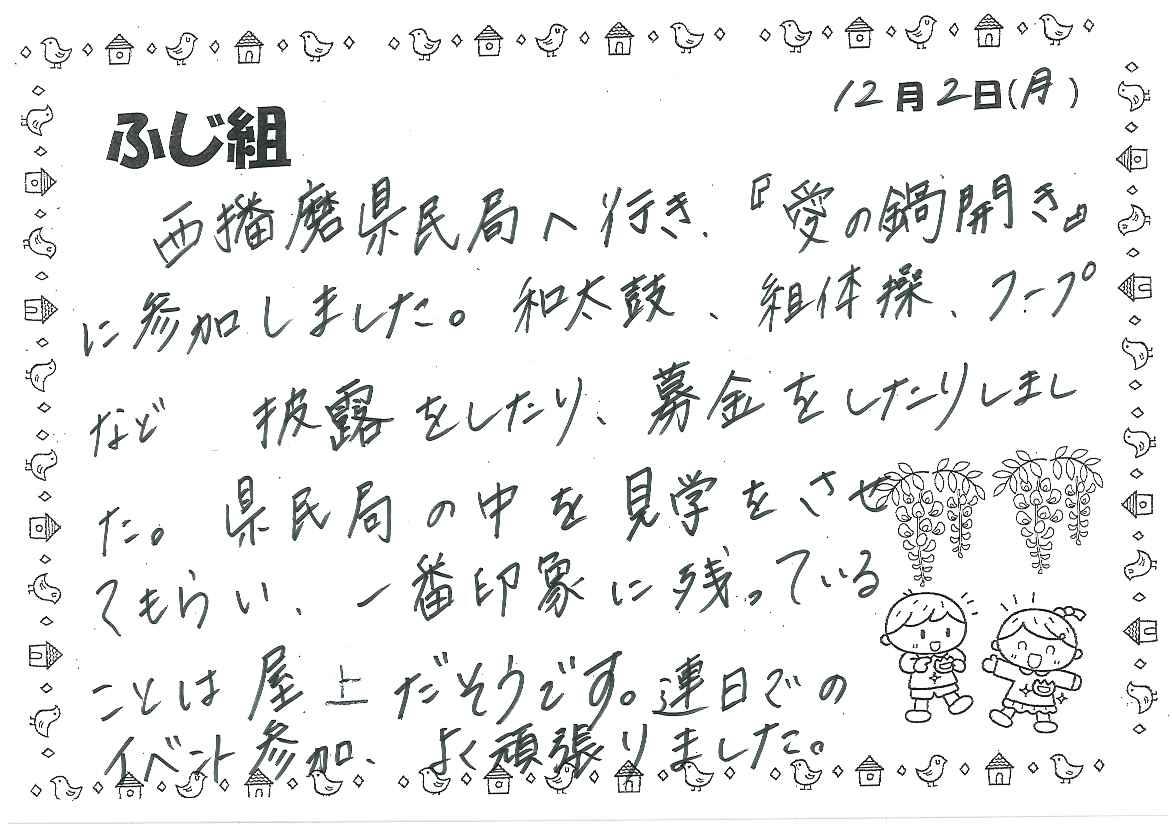 12月2日(月)
ふじ組
西播磨県民局へ行き、『愛の鍋開き』
に参加しました。和太鼓、組体操、フープ
など 披露をしたり、募金をしたりしまし
た。県民局の中を見学をさせ
てもらい、一番印象に残っている
ことは屋上だそうです。連日での
イベント参加、よく頑張りました。